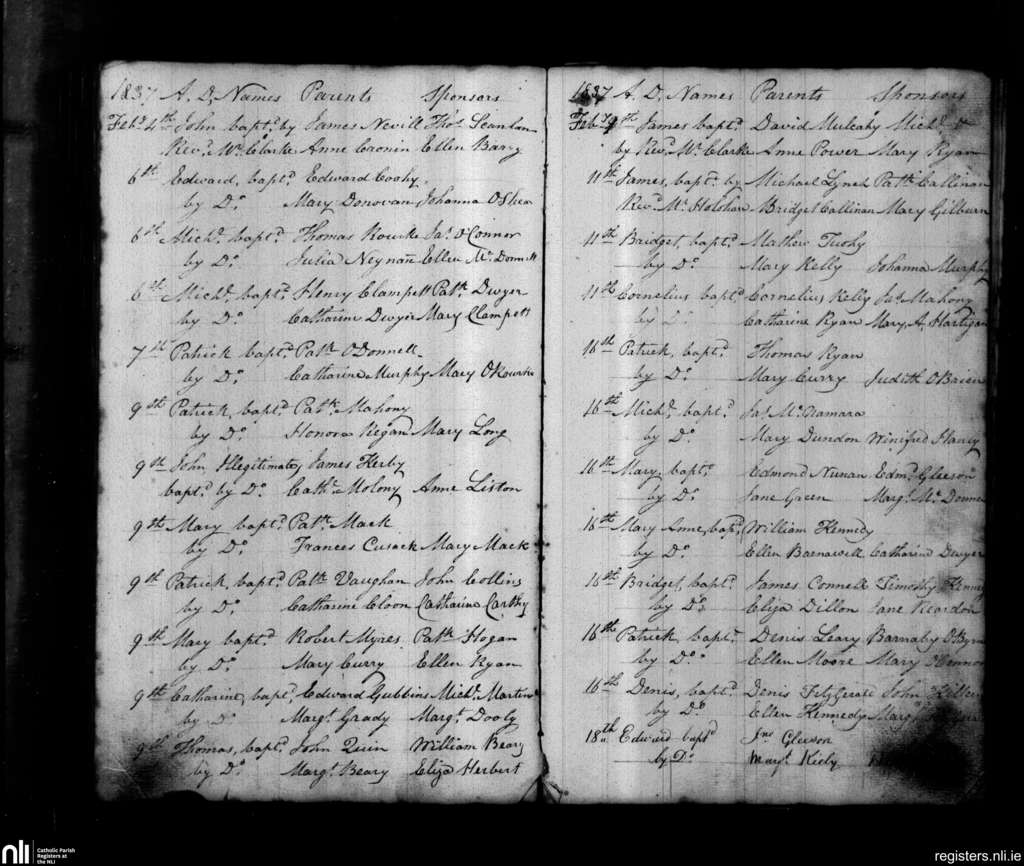 1837 A.D. Names Parents Sponsors
Feby 4th John bapt.d by James Nevill Thos Scanlan
Revd Mr Clarke Anne Cronin Ellen Barry
6th Edward, bapt.d Edward
by Do Mary Donovan Johanna OShea
6th Michl. bapt.d Thomas Rourke Jas OConnor
by Do Julia Ellen McDonnell
6th Michl. bapt.d Henry Clampett Patk Dwyer
by Do Catharine Dwyer Mary Clampett
7th Patrick bapt.d Patk ODonnell
by Do Catharine Murphy Mary ORourke
9th Patrick, bapt.d Patk. Mahony
by Do Honora Regan Mary Long
9th John Illegitimate James Herby
bapt.d by Do Cathe Molony Anne Liston
9th Mary bapt.d Patk. Mack
by Do Frances Cusack Mary Mack
9th Patrick, bapt.d Patk Vaughan John Collins
by Do Catharine Cloon Catharine Carthy
9th Mary bapt.d Robert Myres Patk Hogan
by Do Mary Curry Ellen Ryan
9th Catharine, bapt.d Edward Gubbins Michl. Martin
by Do Margt. Grady Margt. Dooly
9th Thomas, bapt.d John Quin William Beary
by Do Margt. Beary Eliza Herbert
1837 A.D. Names Parents Sponsors
Feby 9th James bapt.d David Mulcahy Michl.
by Revd Mr Clarke Anne Power Mary Ryan
11th James, bapt.d by Michael Lynch Patk Callinan
Revd Mr Holohan Bridget Callinan Mary Gilburn
11th Bridget, bapt.d Mathew Tuohy
by Do Mary Kelly Johanna Murphy
11th Cornelius bapt.d Cornelius Kelly Jas Mahony
by Do Catharine Ryan Mary A. Hartigan
16th Patrick, bapt.d Thomas Ryan
by Do Mary Curry Judith OBrien
16th Michl. bapt.d Jas McNamara
by Do Mary Dundon Winifred
16th Mary, bapt.d Edmond Nunan Edmd Gleeson
by Do Jane Green Margt. McDonnell
16th Mary Anne, bapt.d William Kennedy
by Do Ellen Barnawell Catharine Dwyer
16th Bridget, bapt.d James Connell Timothy
by Do Eliza Dillon Jane Reardon
16th Patrick, bapt.d Denis Leary Barnaby OByrne
by Do Ellen Moore Mary OConnor
16th Denis, bapt.d Denis Fitzgerald John
by Do Ellen Kennedy Margt.
18th Edward bapt.d Jno Gleeson
by Do Margt. Kiely
nli Catholic Parish
Registers at
the NLI
registers.nli.ie